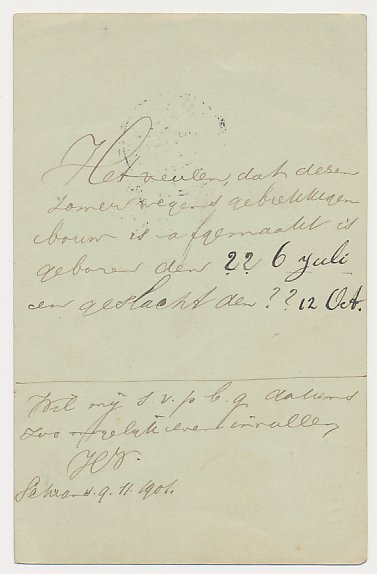 Het veulen, dat dezen
zomer wegens gebrekkigen
bouw is afgemaakt is
geboren den ?? 6 Juli
en geslacht den ?? 12 Oct.
Wil mij s.v.p. b.g. datums
zoo mogelijk even invullen,
9.11.1901.